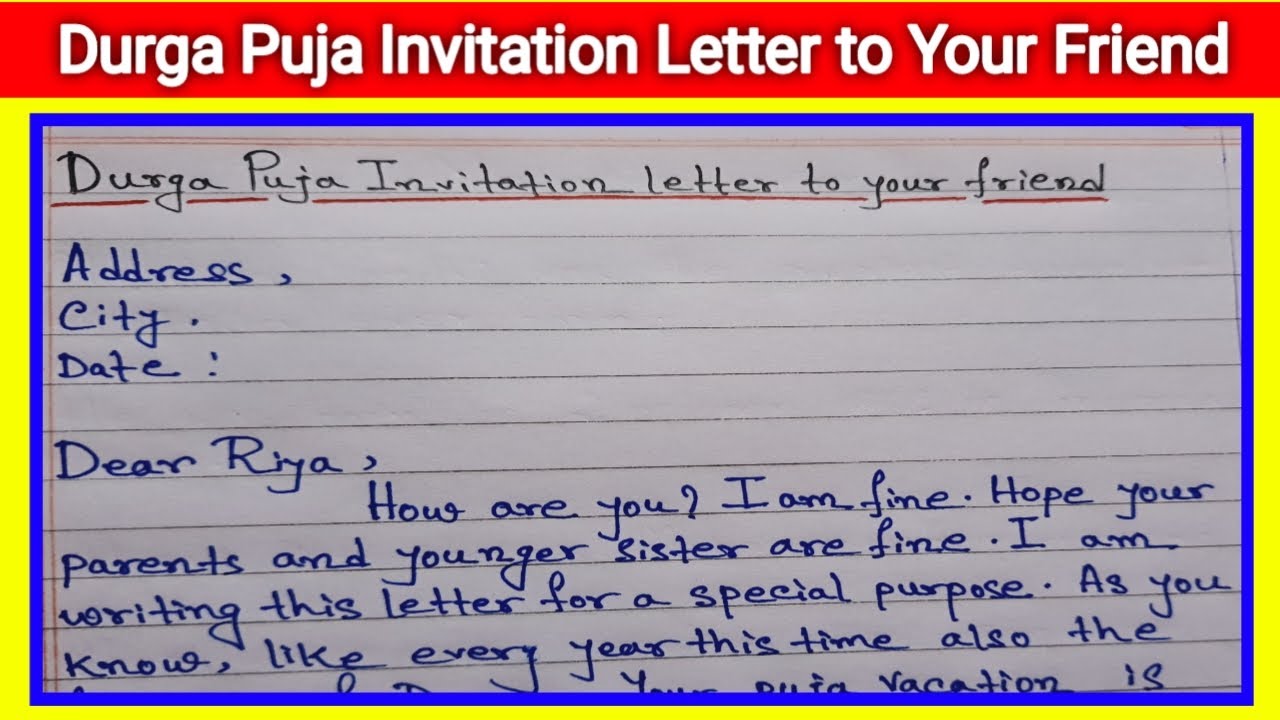 Durga Puja Invitation Letter to Your Friend
Durga Puja Invitation letter to your friend
Address,
City.
Date:
Dear Riya,
How are you? I am fine. Hope your
parents and younger sister are fine. I am
writing this letter for a special purpose. As you
know, like every year this time also the
Your puja vacation is